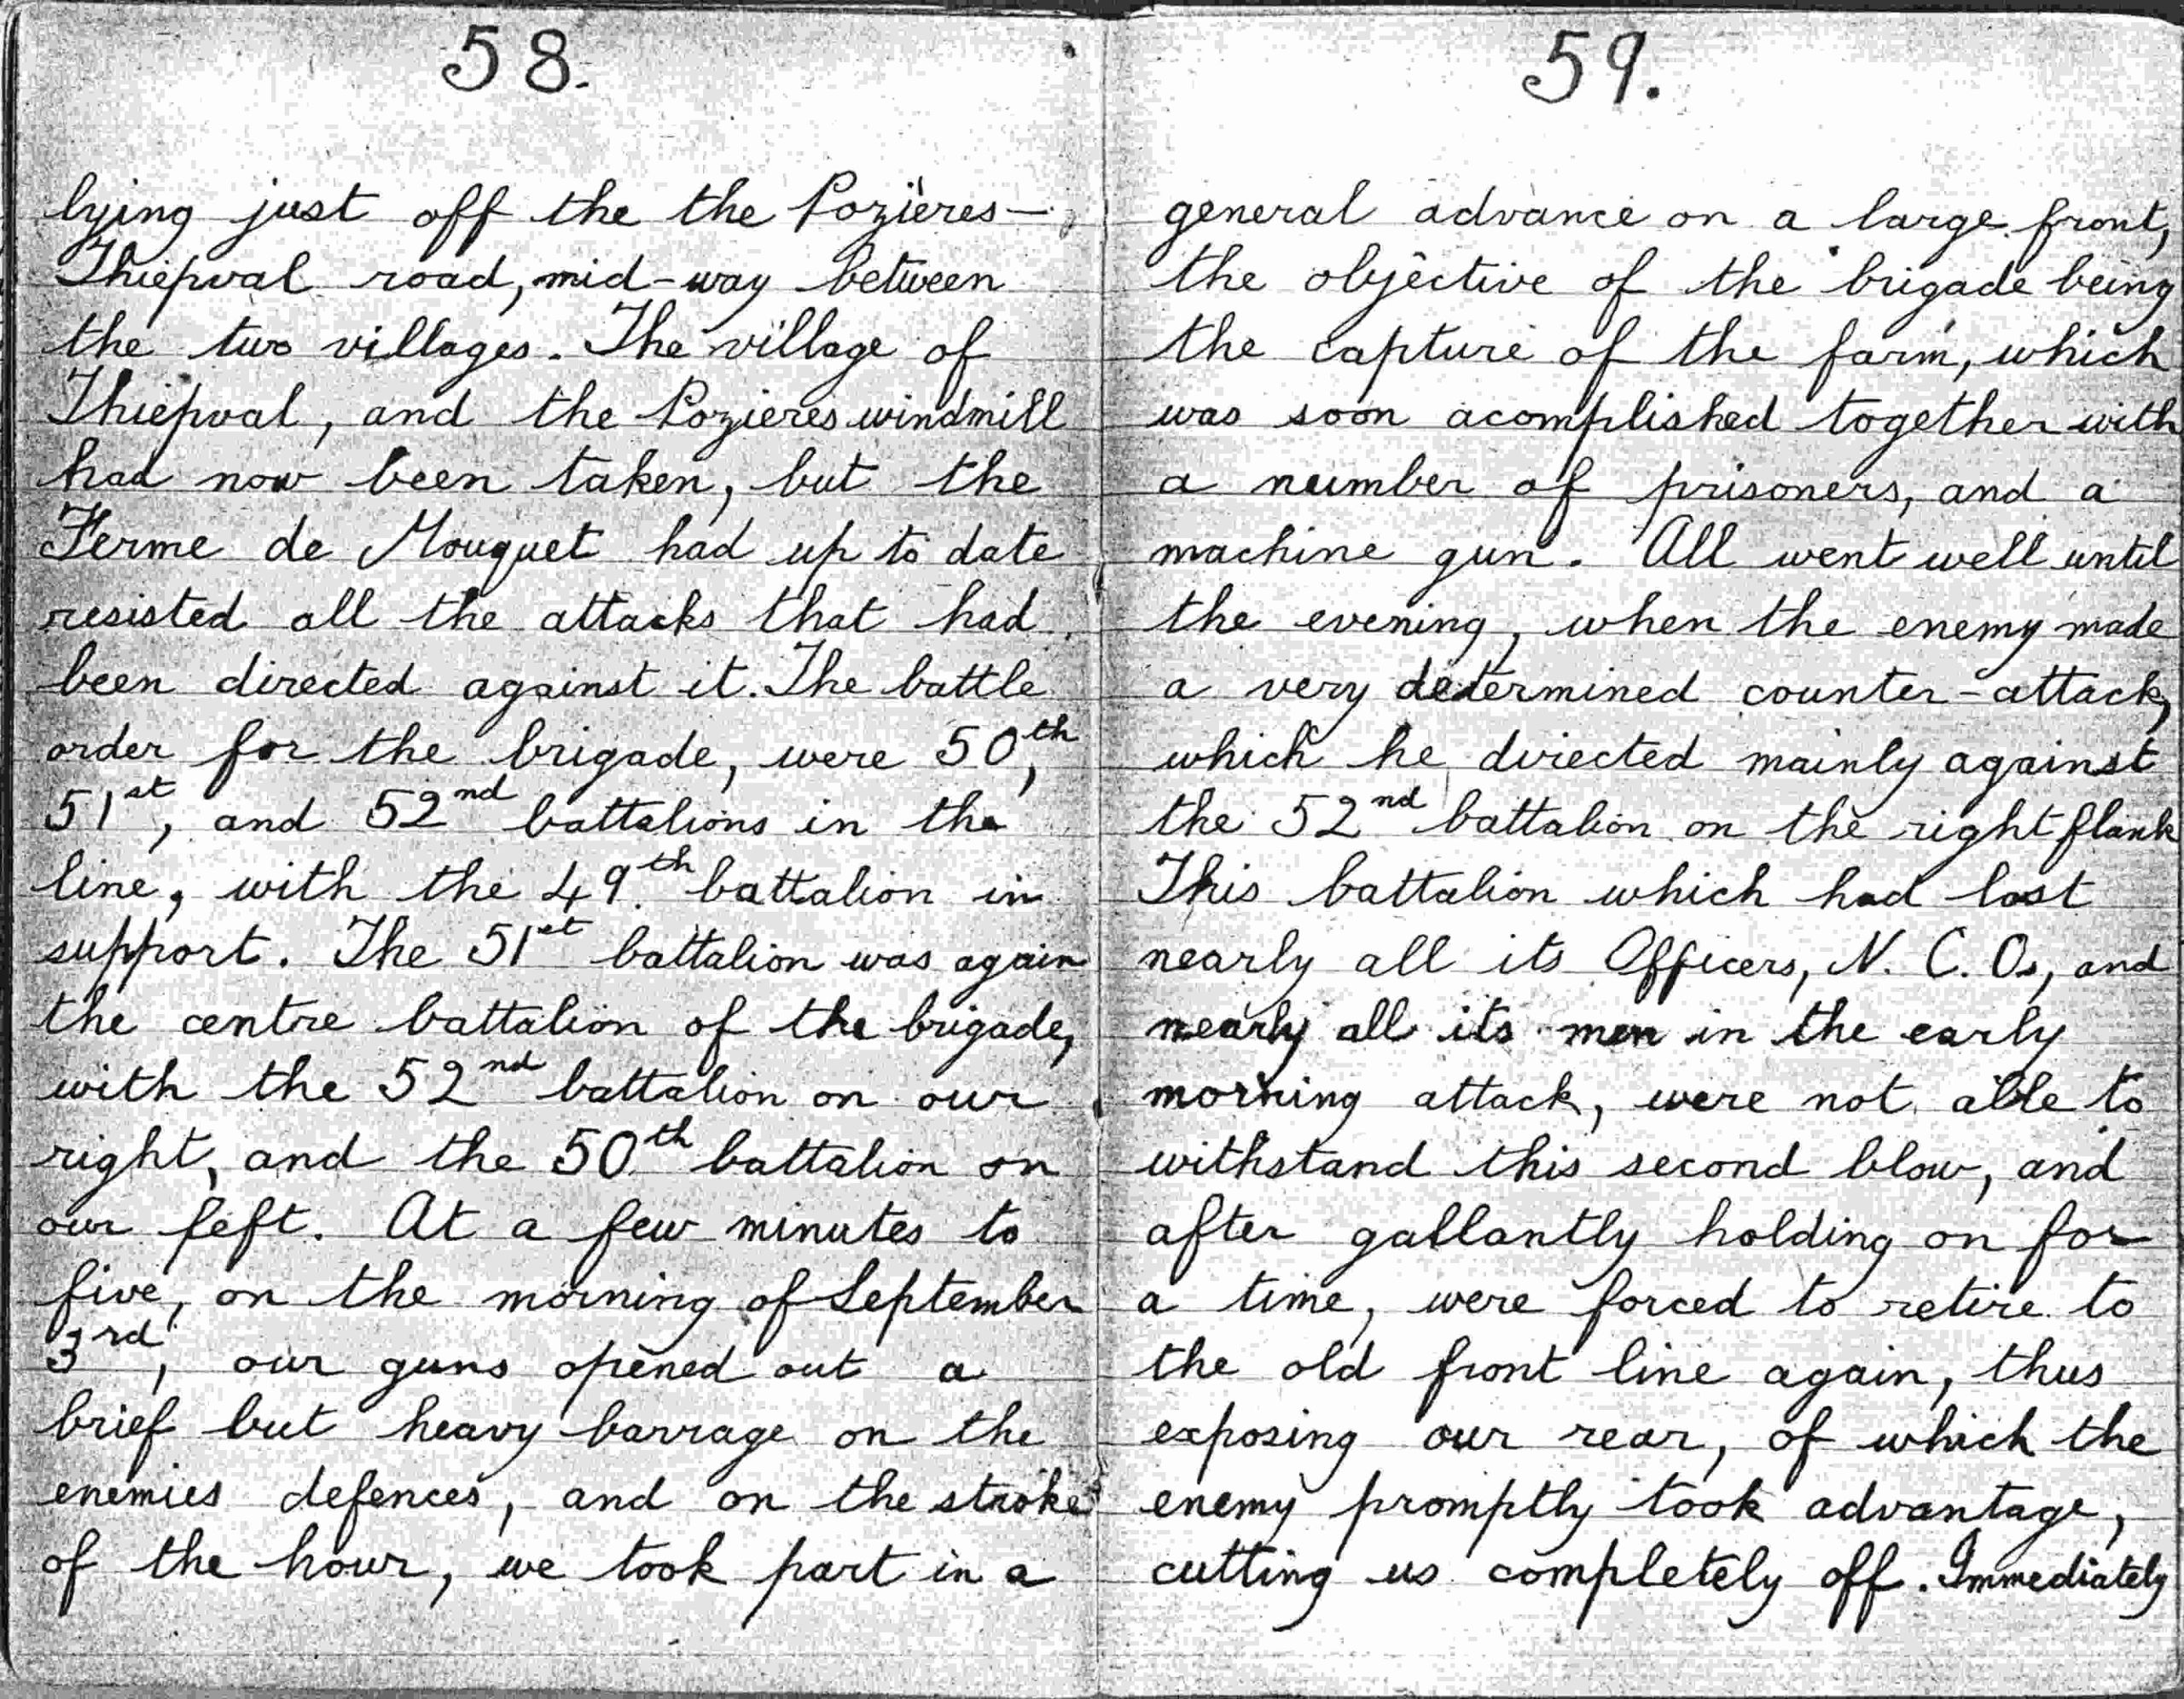 58.
lying just off the the Pozières-
Thiepval road, mid-way between
the two villages. The village of
Thiepval, and the Pozieres windmill
had now been taken, but the
Ferme de Mouquet had up to date
resisted all the attacks that had
been directed against it. The battle
order for the brigade, were 50th,
51st, and 52nd battalions in the
line, with the 49th battalion in
support. The 51st battalion was again
the centre battalion of the brigade,
with the 52nd battalion on our
right, and the 50th battalion on
our left. At a few minutes to
five, on the morning of September
3rd, our guns opened out a
brief but heavy barrage on the
enemies defences, and on the stroke
of the hour, we took part in a
59.
general advance on a large front,
the objective of the brigade being
the capture of the farm, which
was soon acomplished together with
a number of prisoners, and a
machine gun. All went well until
the evening, when the enemy made
a very determined counter-attack,
which he directed mainly against
the 52nd battalion on the right flank
This battalion which had lost
nearly all its Officers, N. C. Os, and
nearly all its men in the early
morning attack, were not able to
withstand this second blow, and
after gallantly holding on for
a time, were forced to retire to
the old front line again, thus
exposing our rear, of which the
enemy promptly took advantage,
cutting us completely off. Immediately